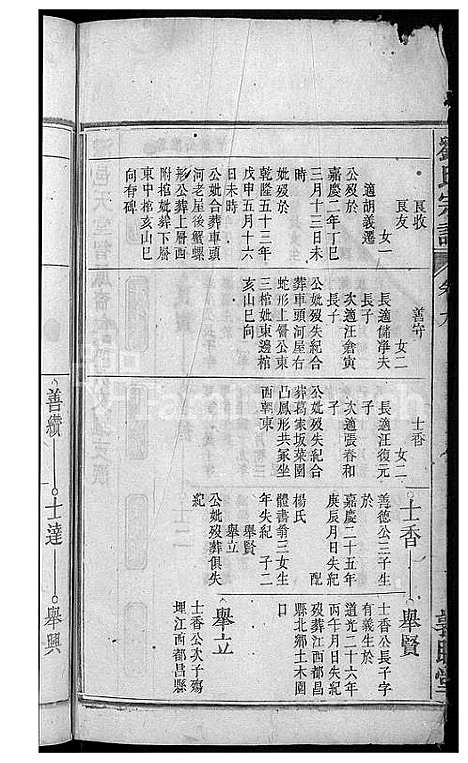 劉氏宗譜
卷九
良收
良友
女一
適胡義遷
公歿於
嘉慶二年丁巳
三月十三日未
時
妣歿於
乾隆五十三年
戊申五月十六
日未時
公妣合葬車頭
河老屋後蟹螺
形公葬上層西
附棺妣葬下層
東中棺亥山巳
向有碑
善守
女二
長適儲淨夫
次適汪倉寅
長子
公妣歿失紀合
葬車頭河屋右
蛇形上層公東
三棺妣東邊棺
亥山巳向
士香
女二
長適汪復元
次適張春和
子
公妣歿失紀合
葬葛家坂菜園
凸鳳形共冢坐
西朝東
士香
善德公三子生
於
嘉慶二十五年
庚辰月日失紀
配
楊氏
體書翁三女生
年失紀 子二
舉賢
舉立
公妣歿葬俱失
紀
舉賢
士香公長子字
有義生於
道光二十六年
丙午月日失紀
歿葬江西都昌
縣北鄉土木園
口
舉立
士香公次子殤
埋江西都昌縣
善纘
士達
舉興